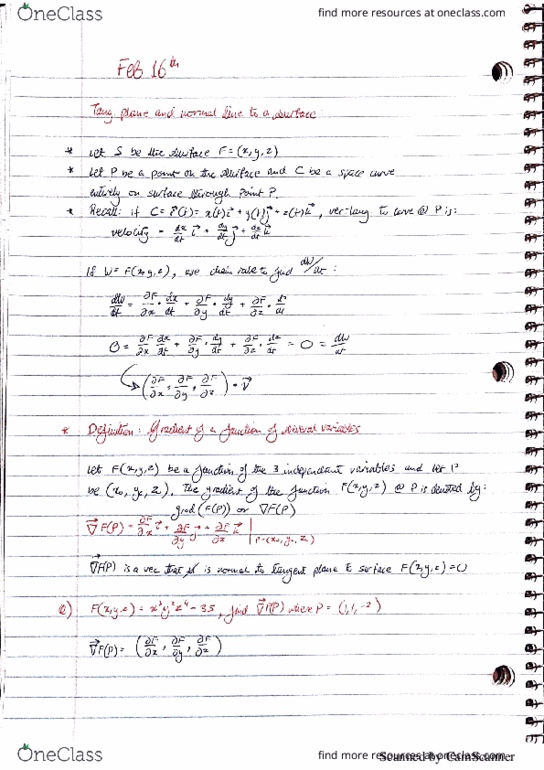 OneClass
find more resources at oneclass.com
Feb 16th
Tang plane and normal line to a surface:
* Let S be the surface F = (x, y, z)
* Let P be a point on the surface and C be a space curve
entirely on surface through point P.
* Recall: if C = r⃗(t) = x(t)i⃗ + y(t)j⃗ + z(t)k⃗, vec-tang to curve @ P is:
velocity = dx/dt i⃗ + dy/dt j⃗ + dz/dt k⃗
If W = F(x,y,z), use chain rule to find dW/dt :
dW/dt = ∂F/∂x · dx/dt + ∂F/∂y · dy/dt + ∂F/∂z · dz/dt
0 = ∂F/∂x dx/dt + ∂F/∂y · dy/dt + ∂F/∂z · dz/dt = 0 = dW/dt
(∂F/∂x, ∂F/∂y, ∂F/∂z) · v⃗
* Definition: Gradient of a function of several variables
Let F(x,y,z) be a function of the 3 independant variables and let P
be (x₀, y₀, z₀). The gradient of the function F(x,y,z) @ P is denoted by:
grad(F(P)) or ∇F(P)
∇⃗F(P) = ∂F/∂x i⃗ + ∂F/∂y j⃗ + ∂F/∂z k⃗ | P=(x₀, y₀, z₀)
∇⃗F(P) is a vec that is normal to tangent plane to surface F(x,y,z) = 0
F(x,y,z) = z⁴ - 35, find ∇⃗F(P) where P = (1,1,-2)
∇⃗F(P) = (∂F/∂x, ∂F/∂y, ∂F/∂z)
OneClass
find more resources at oneclass.com
Scanned by CamScanner